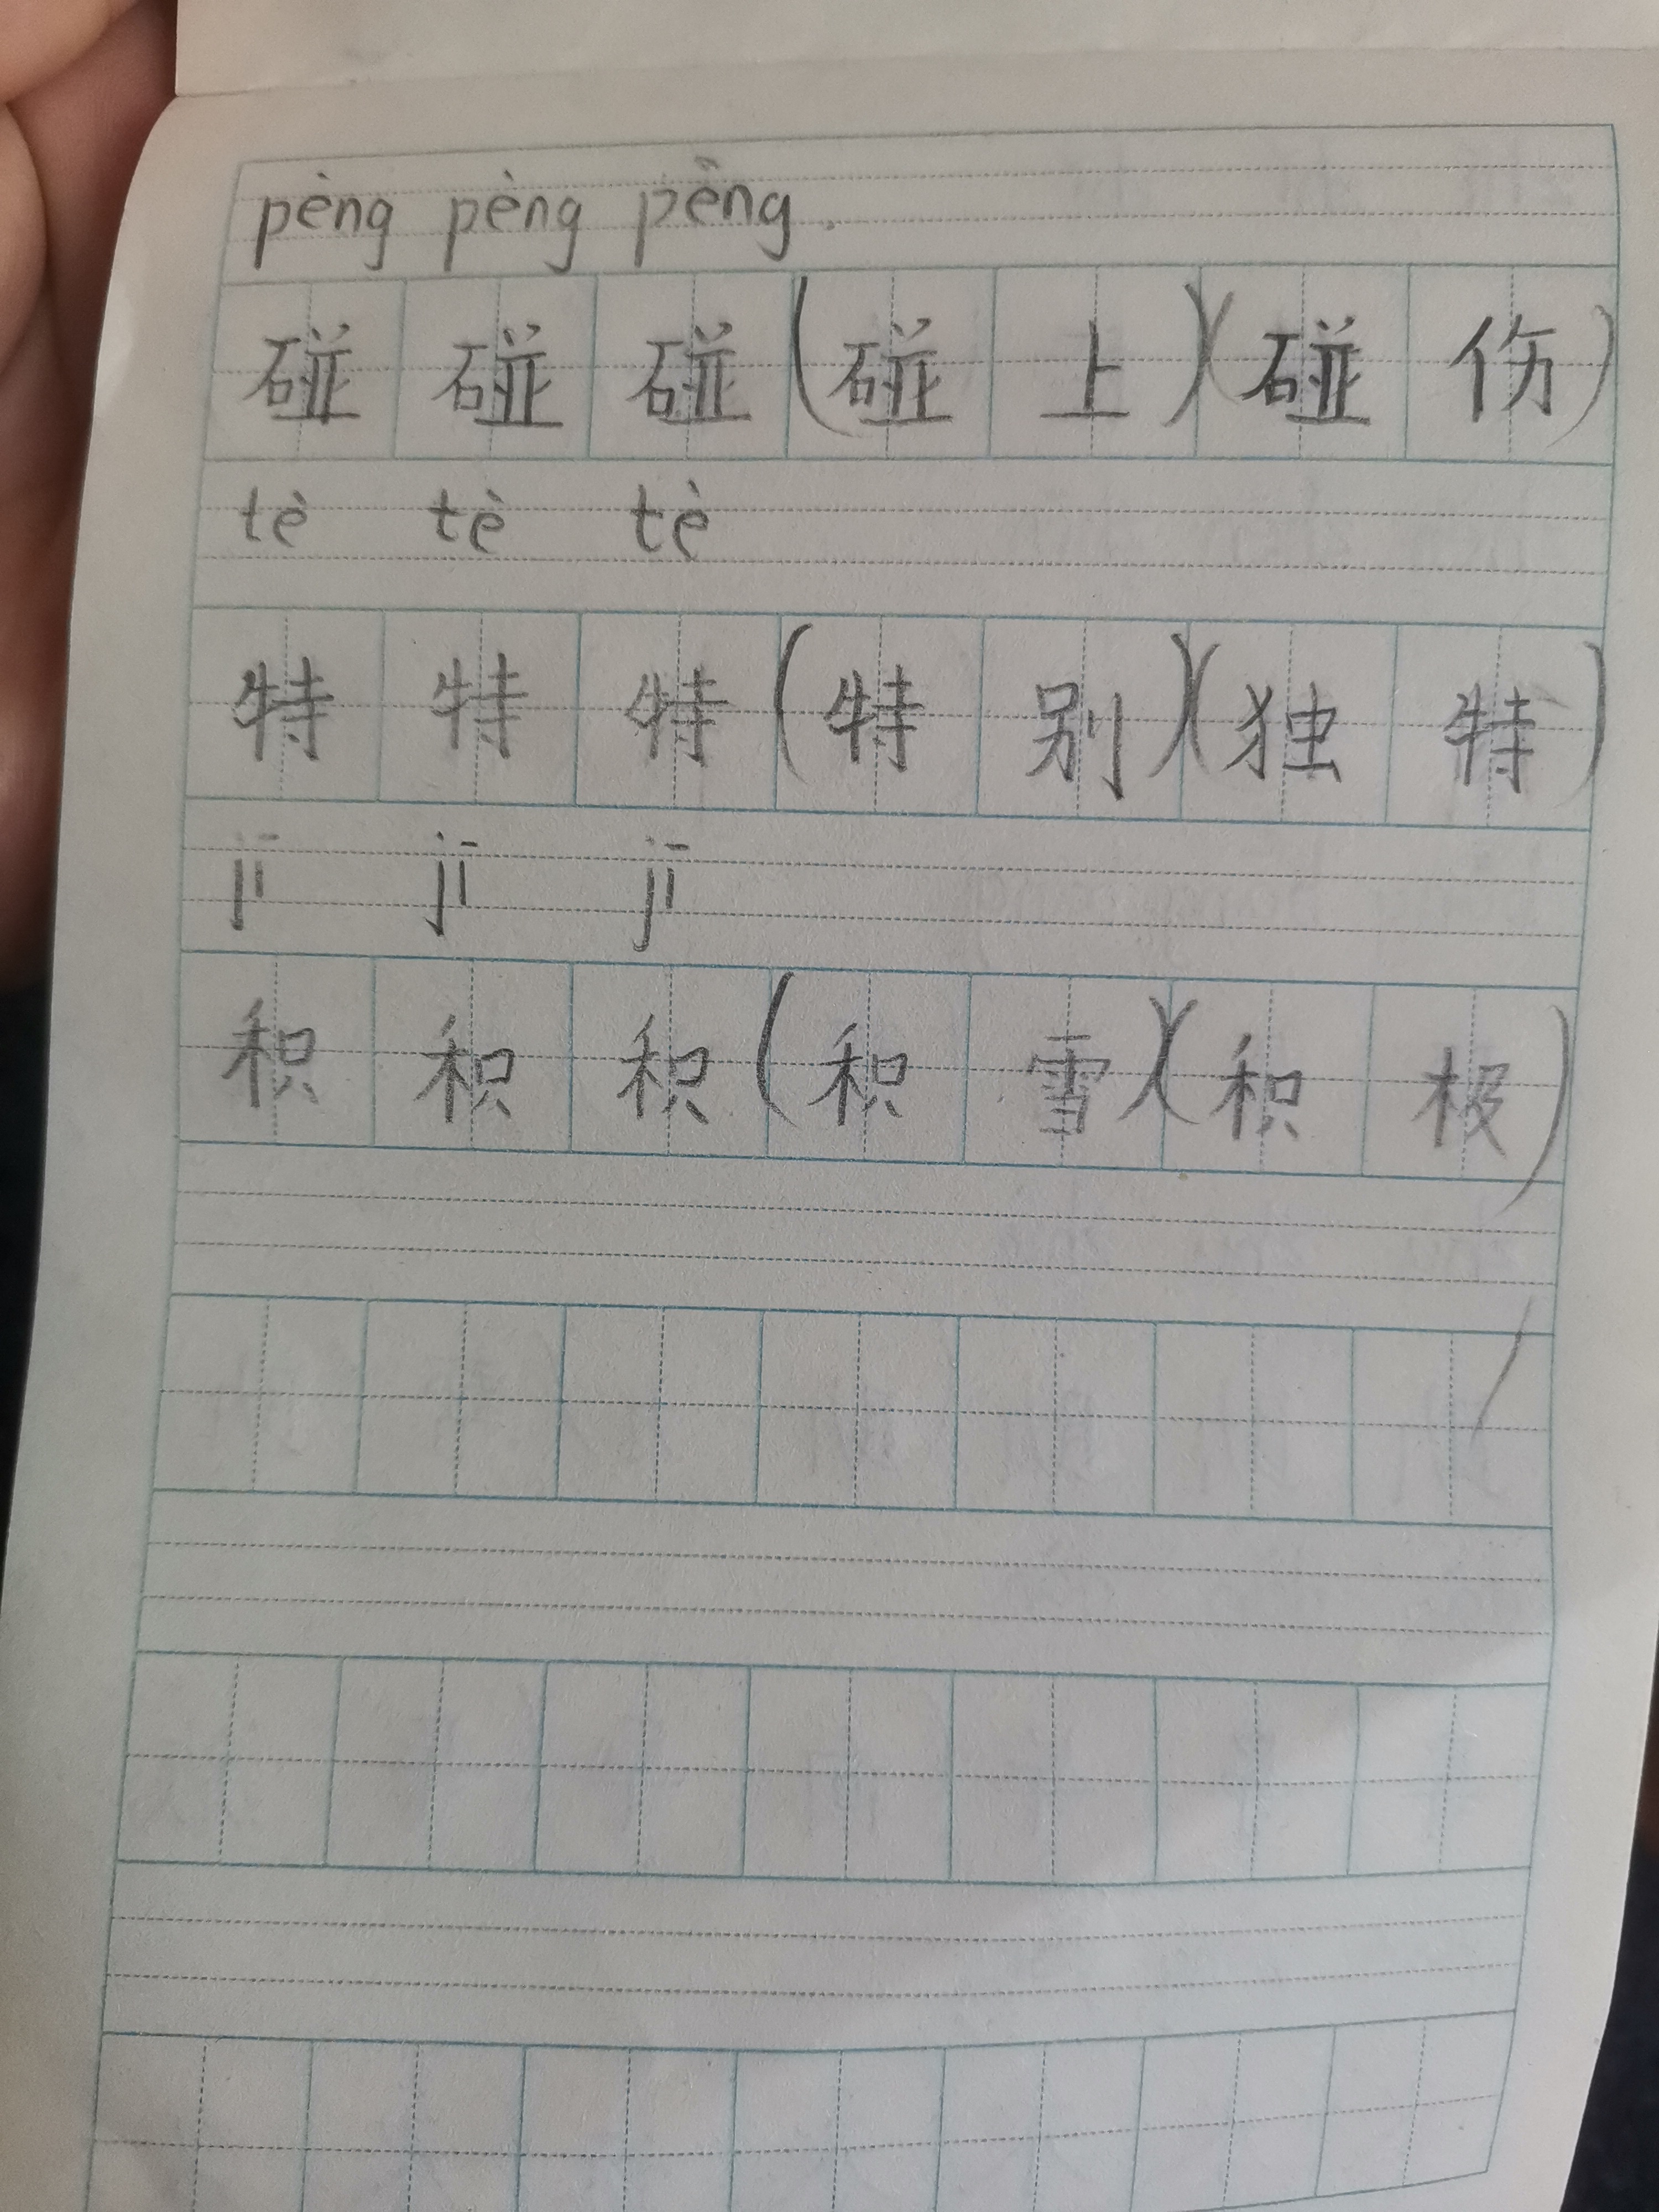 pèng pèng pèng.
碰碰碰(碰上)(碰伤)
tè tè tè
特特特(特别)(独特)
jī jī jī
积积积(积雪)(积极)